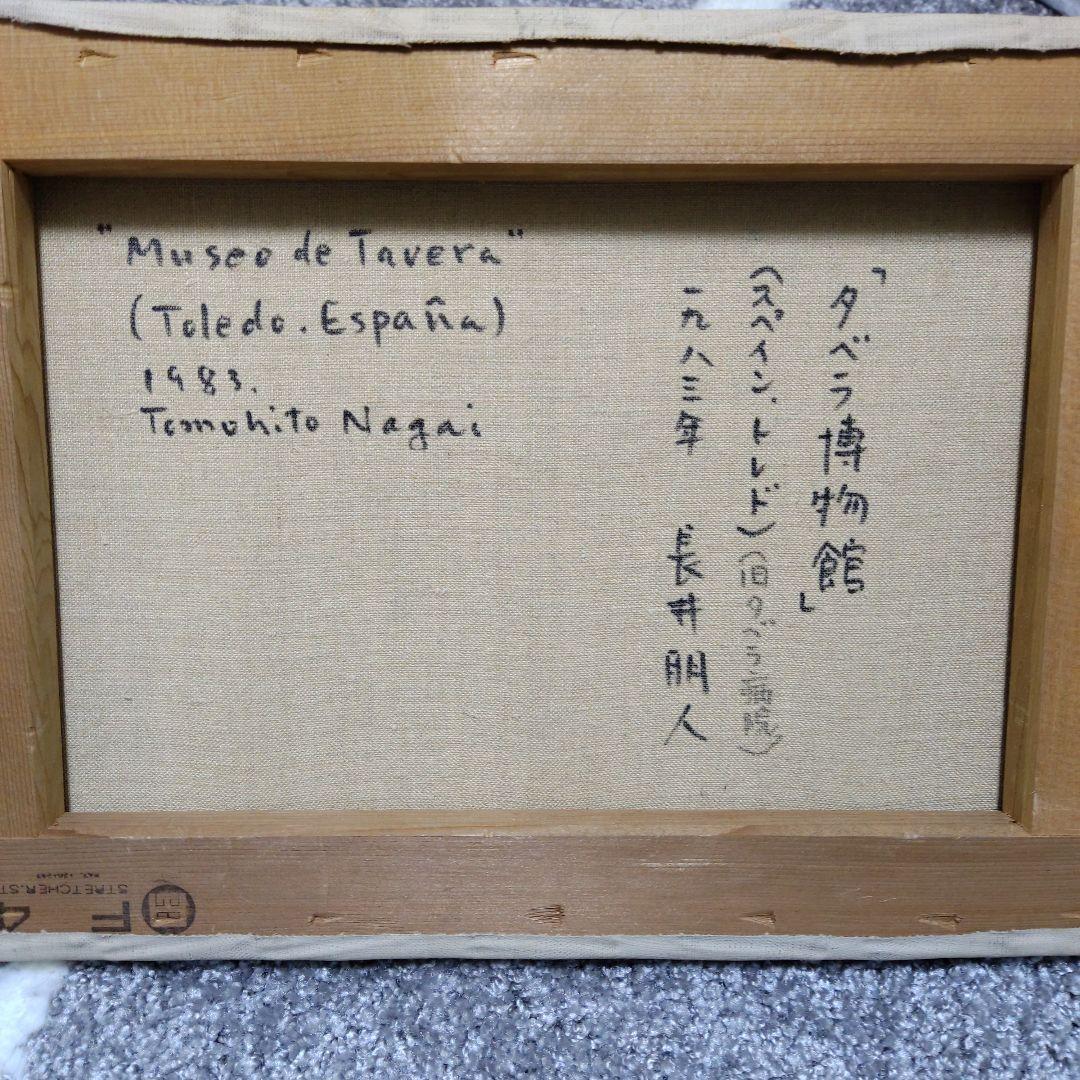 "Museo de Tavera"
(Toledo. España)
1983.
Tomohito Nagai
「タベラ博物館」
(スペイン、トレド)(旧タベラ病院)
一九八三年 長井朋人
STRETCHER.ST
F4